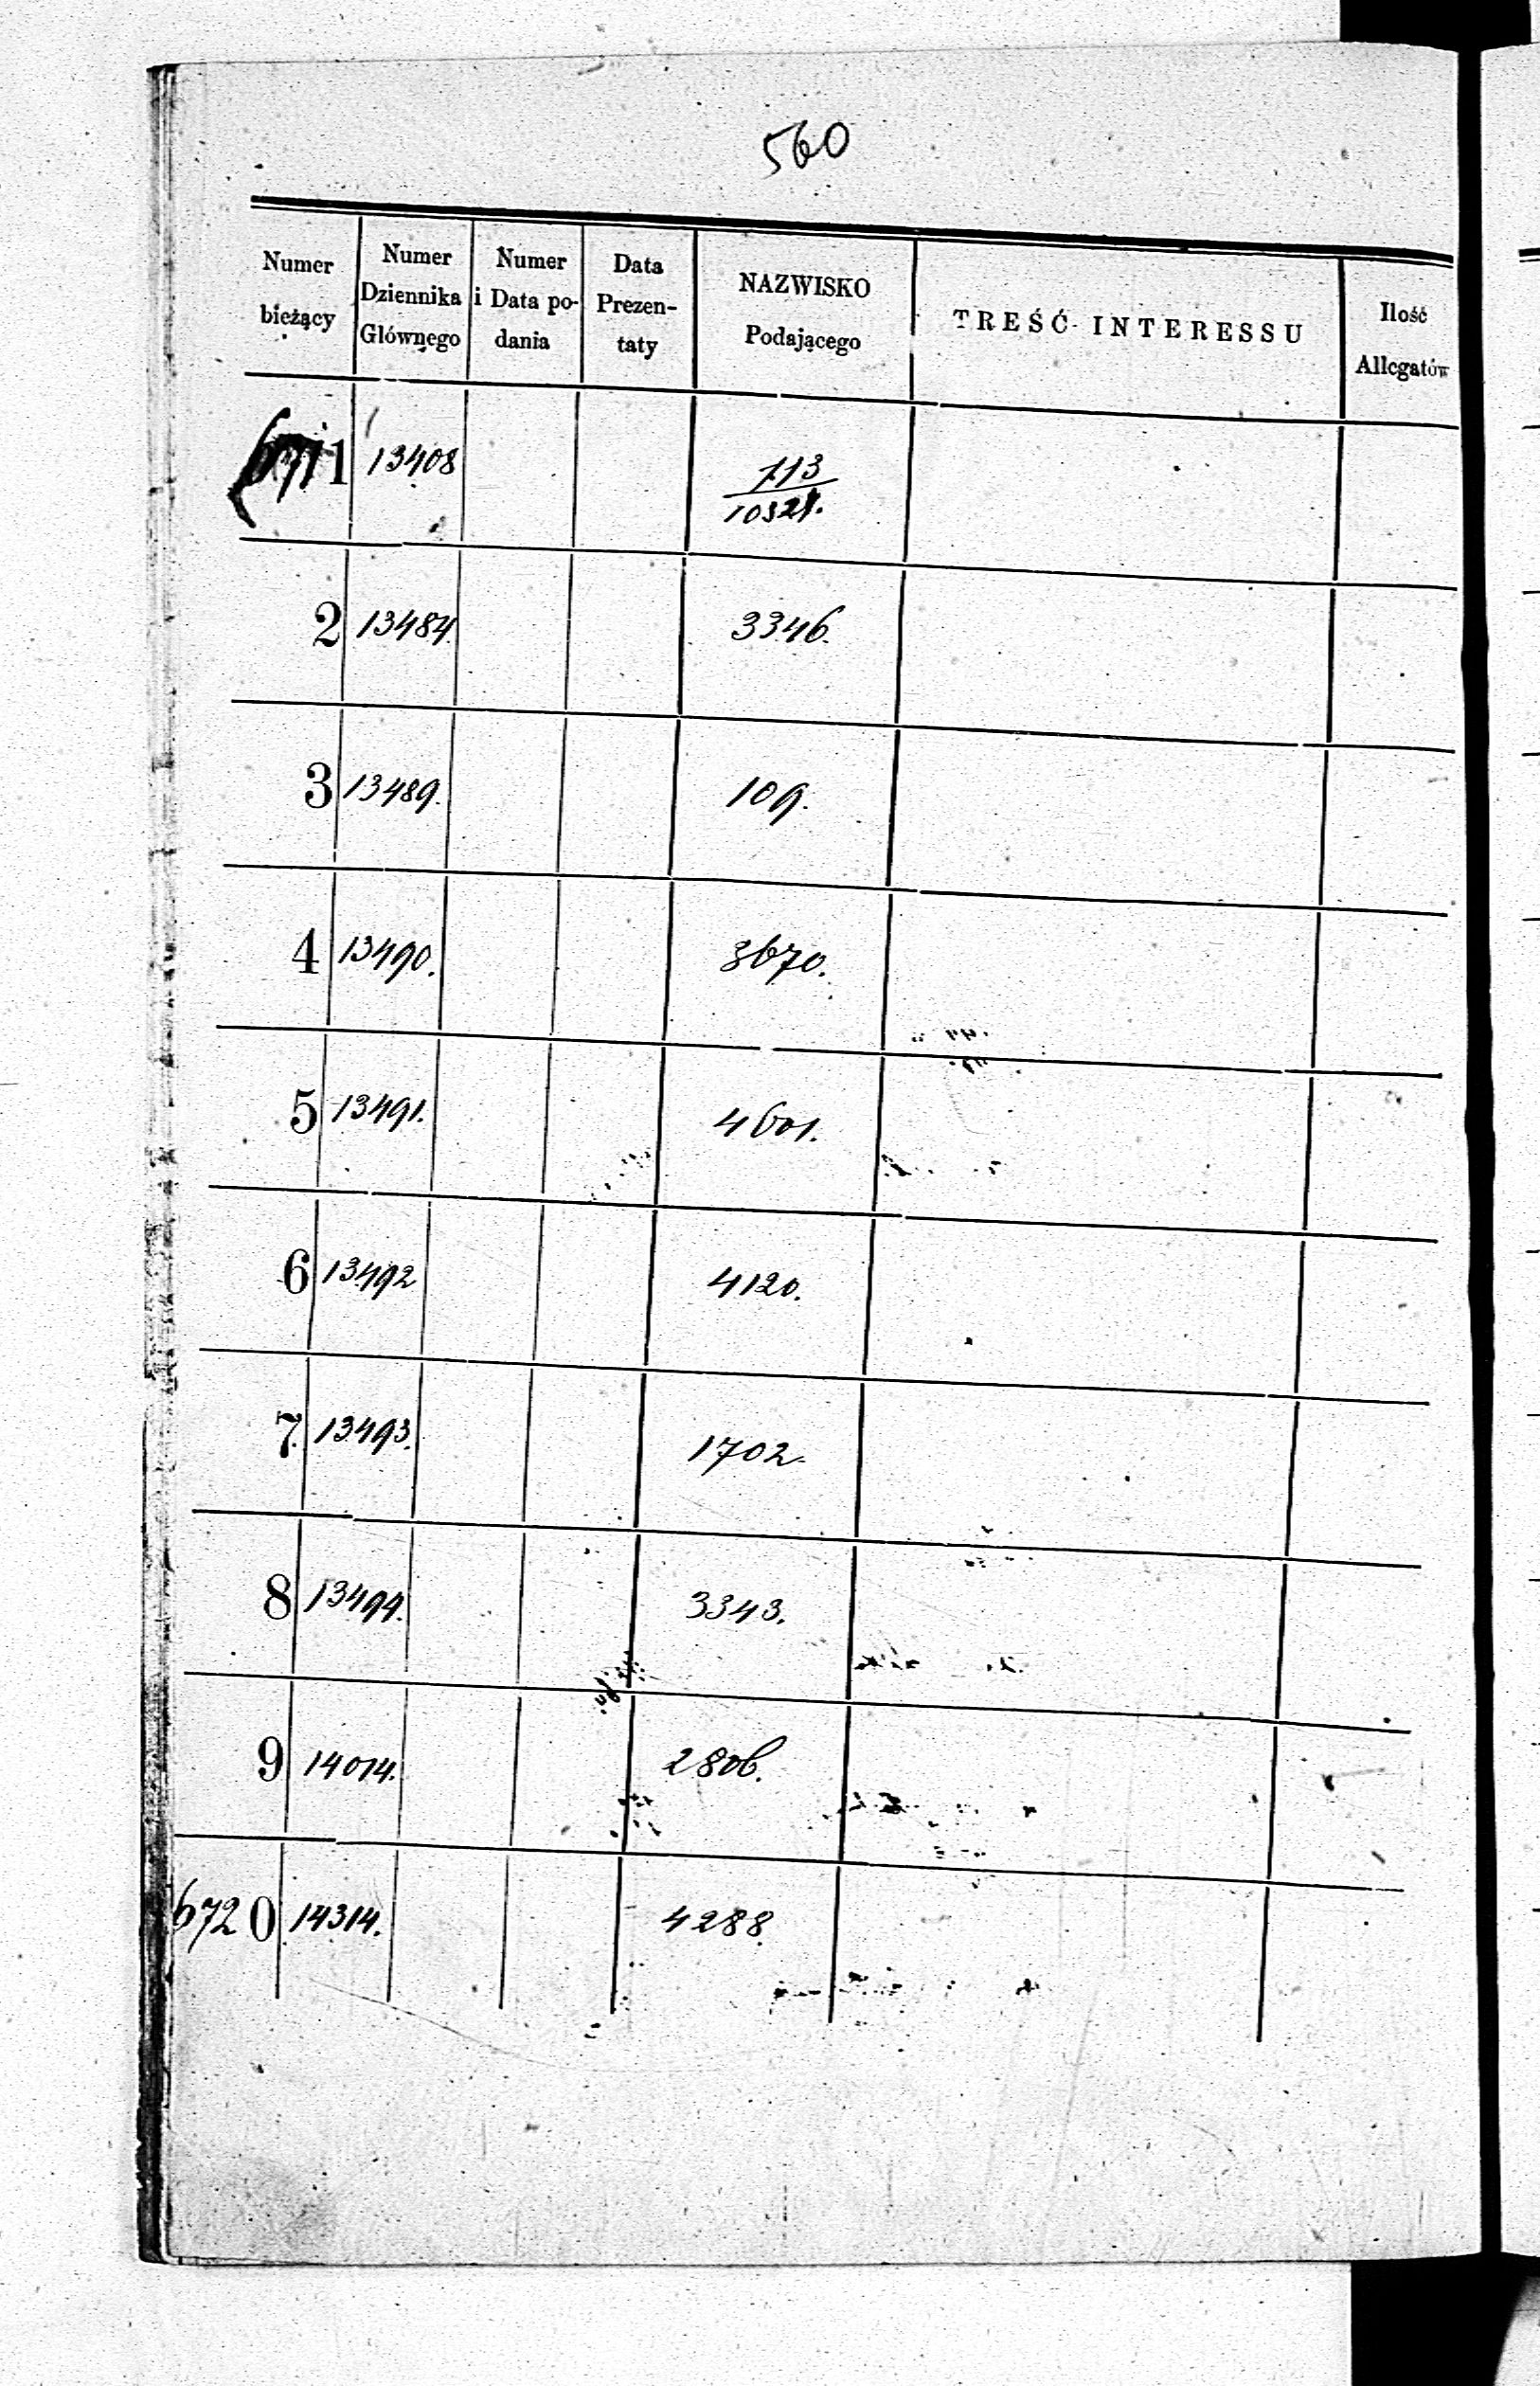 560
Numer bieżący | Numer Dziennika Głównego | Numer i Data podania | Data Prezentaty | NAZWISKO Podającego | TREŚĆ INTERESSU | Ilość Allegatów
6711 | 13408 | | | 113/10321. | |
2 | 13484. | | | 3346. | |
3 | 13489. | | | 109. | |
4 | 13490. | | | 3670. | |
5 | 13491. | | | 4601. | |
6 | 13492 | | | 4120. | |
7 | 13493. | | | 1702. | |
8 | 13494. | | | 3343. | |
9 | 14014. | | | 2806. | |
6720 | 14314. | | | 4288. | |